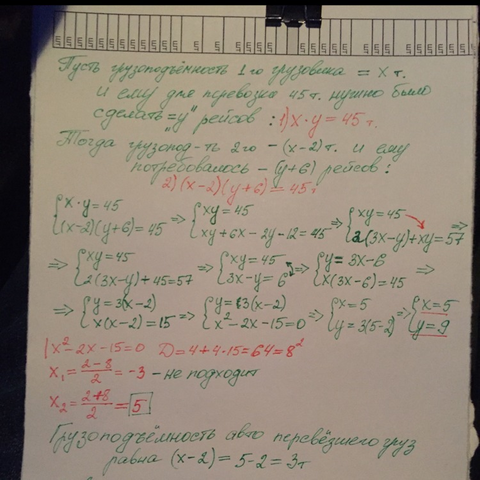 Пусть грузоподъённость 1го грузовика = x т.
и ему для перевозки 45 т. нужно было
сделать = "y" рейсов : 1) x · y = 45 т.
Тогда грузопод-ть 2го - (x-2) т. и ему
потребовалось - (y+6) рейсов :
2) (x-2)(y+6) = 45 т
{x·y=45 (x-2)(y+6)=45 => {xy=45 xy+6x-2y-12=45 => {xy=45 2(3x-y)+xy=57 =>
=> {xy=45 2(3x-y)+45=57 => {xy=45 3x-y=6 => {y=3x-6 x(3x-6)=45 =>
=> {y=3(x-2) x(x-2)=15 => {y=3(x-2) x²-2x-15=0 => {x=5 y=3(5-2) => {x=5 y=9
x²-2x-15=0 D=4+4·15=64=8²
x₁ = (2-8)/2 = -3 - не подходит
x₂ = (2+8)/2 = 5
Грузоподъёмность авто перевёзшего груз
равна (x-2) = 5-2 = 3т